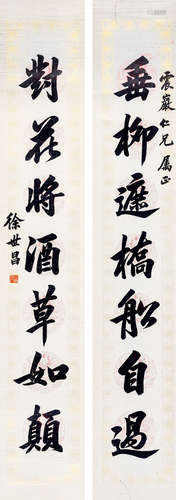 震岩仁兄屬正
垂柳遮橋船自過
對花將酒草如顛
徐世昌